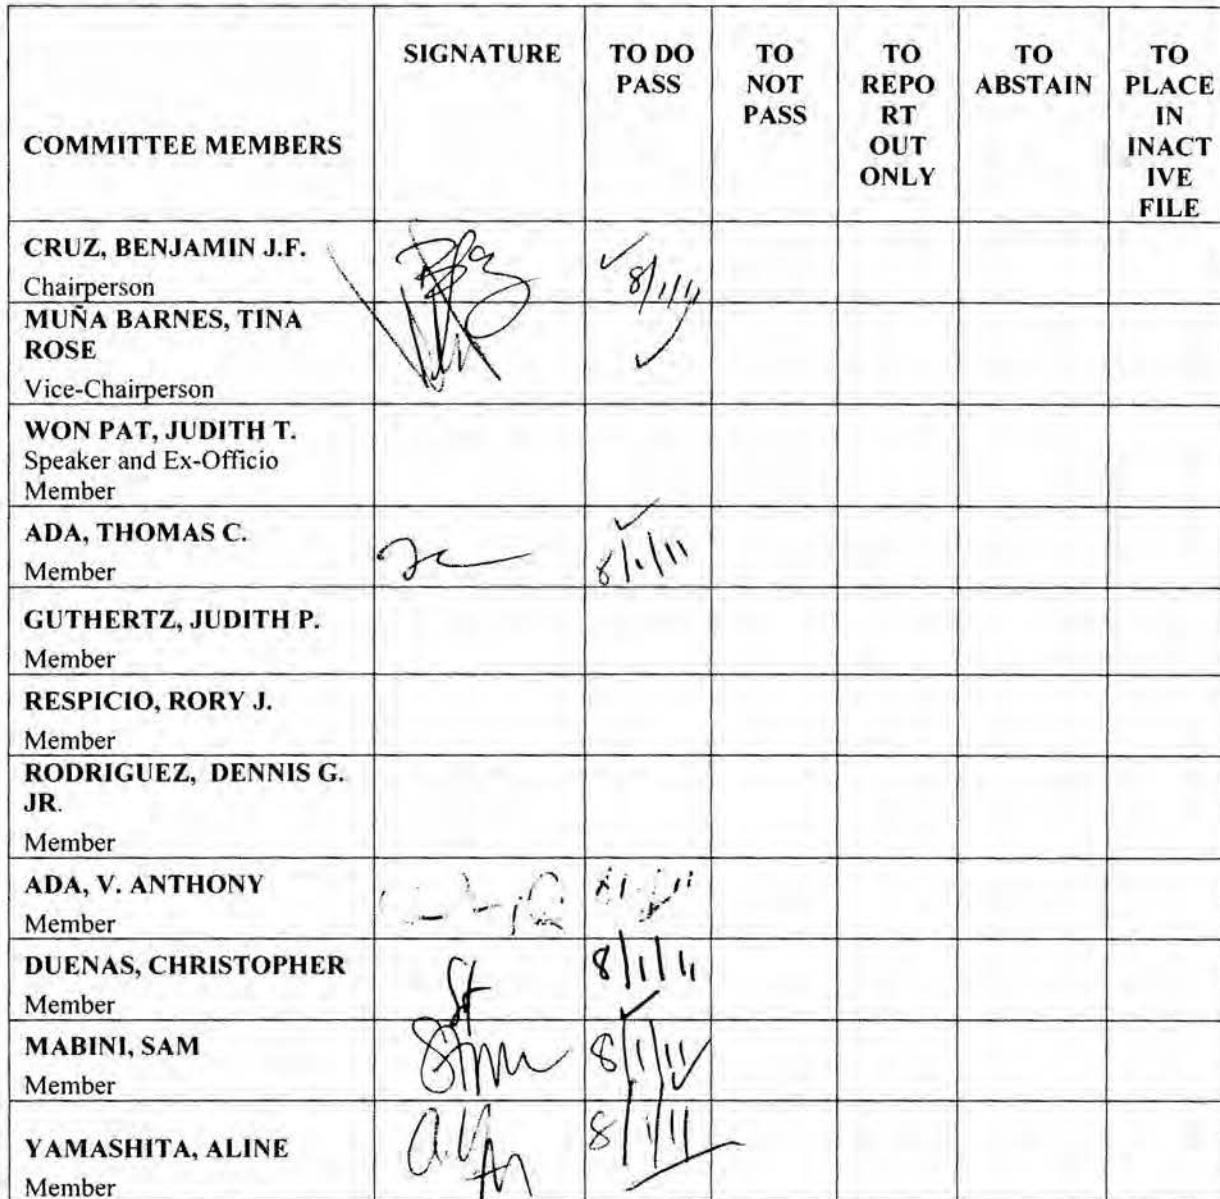 COMMITTEE MEMBERS
SIGNATURE
TO DO
PASS
TO
NOT
PASS
TO
REPO
RT
OUT
ONLY
TO
ABSTAIN
TO
PLACE
IN
INACT
IVE
FILE
CRUZ, BENJAMIN J.F.
Chairperson
✓ 8/1/11
MUÑA BARNES, TINA
ROSE
Vice-Chairperson
✓
WON PAT, JUDITH T.
Speaker and Ex-Officio
Member
ADA, THOMAS C.
Member
✓
8/1/11
GUTHERTZ, JUDITH P.
Member
RESPICIO, RORY J.
Member
RODRIGUEZ, DENNIS G.
JR.
Member
ADA, V. ANTHONY
Member
DUENAS, CHRISTOPHER
Member
8/1/11
✓
MABINI, SAM
Member
8/1/11
✓
YAMASHITA, ALINE
Member
8/1/11